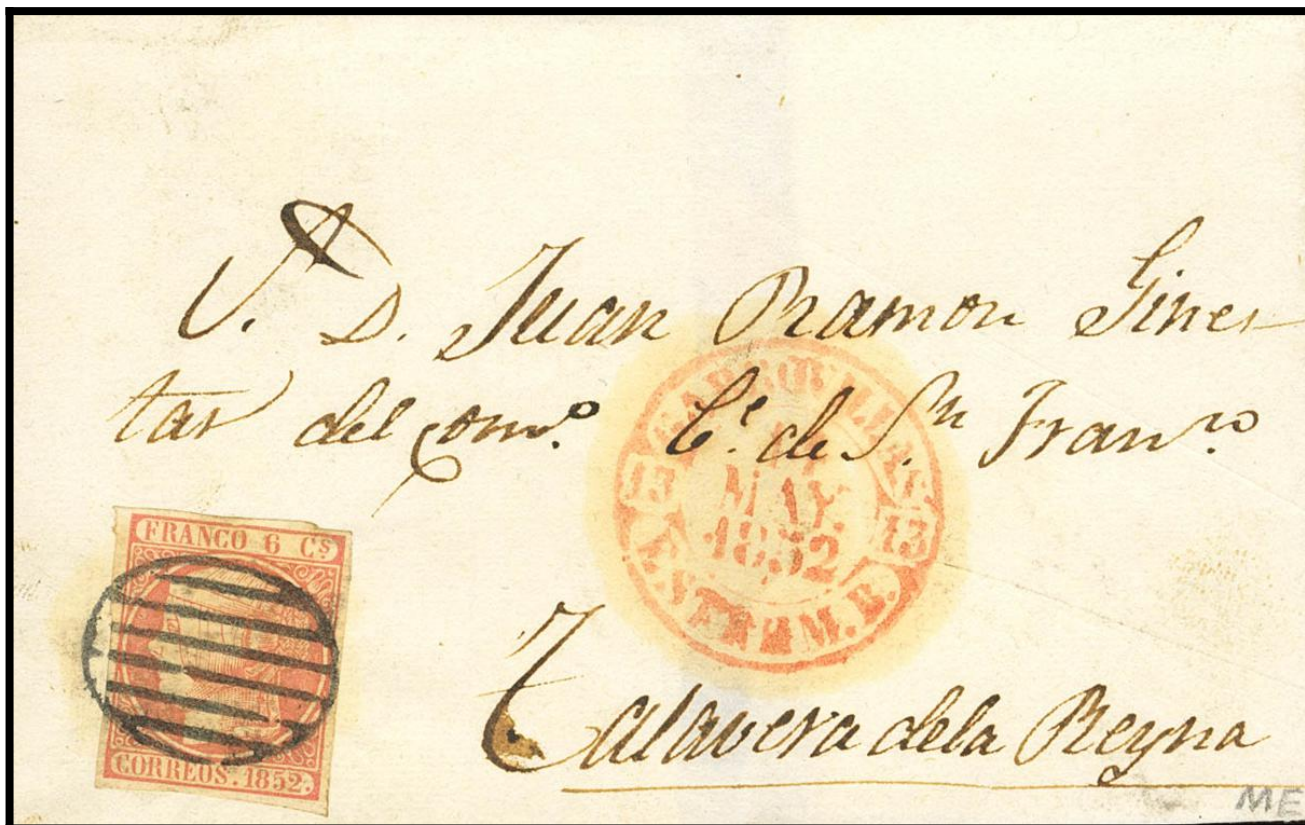 S. D. Juan Ramon Gines
tar del com.º C.e de S.n Fran.co
13
MAY.
1852
13
ESTREM.B.
FRANCO 6 Cs
CORREOS. 1852.
Talavera dela Reyna
ME